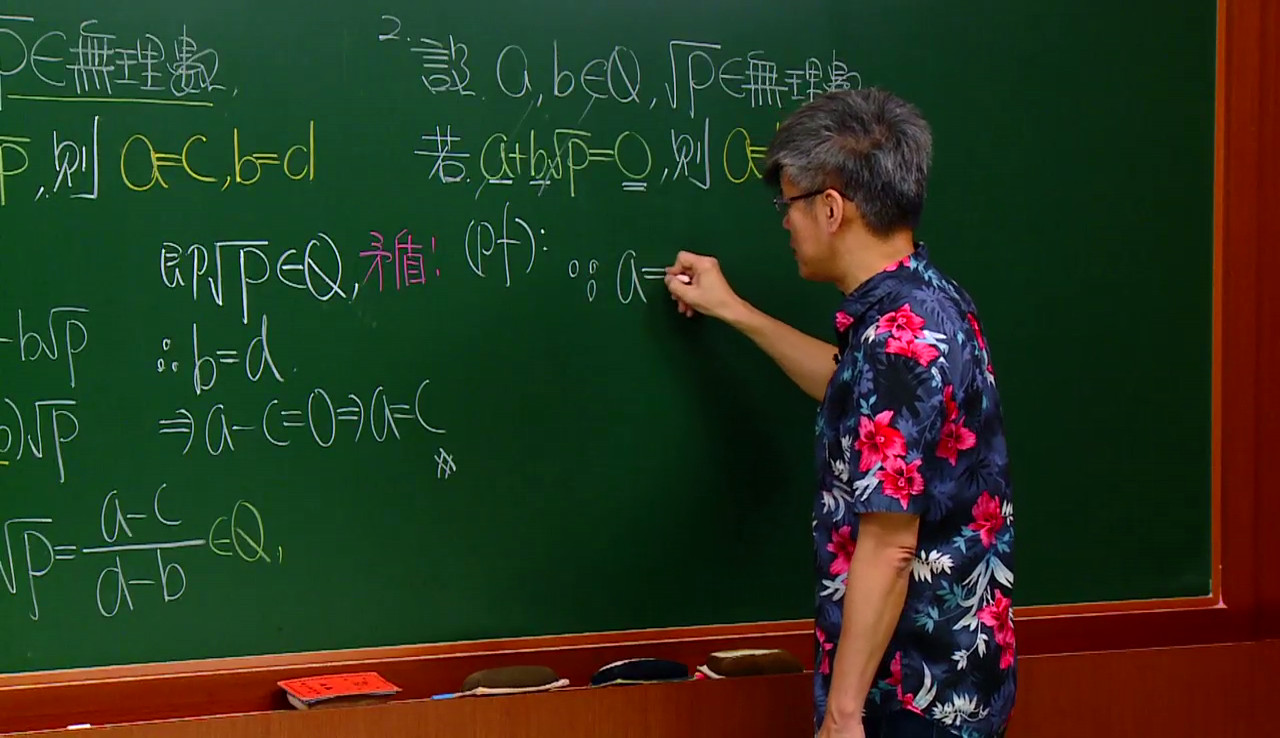 √p∈無理數,
√p,則 a=c,b=d
即√p∈Q,矛盾!
-b√p
∴b=d
)√p
⇒a-c=0⇒a=c
※
√p=(a-c)/(d-b)∈Q,
2.設 a,b∈Q,√p∈無理數
若 a+b√p=0,則 a=
(pf):
∵a=